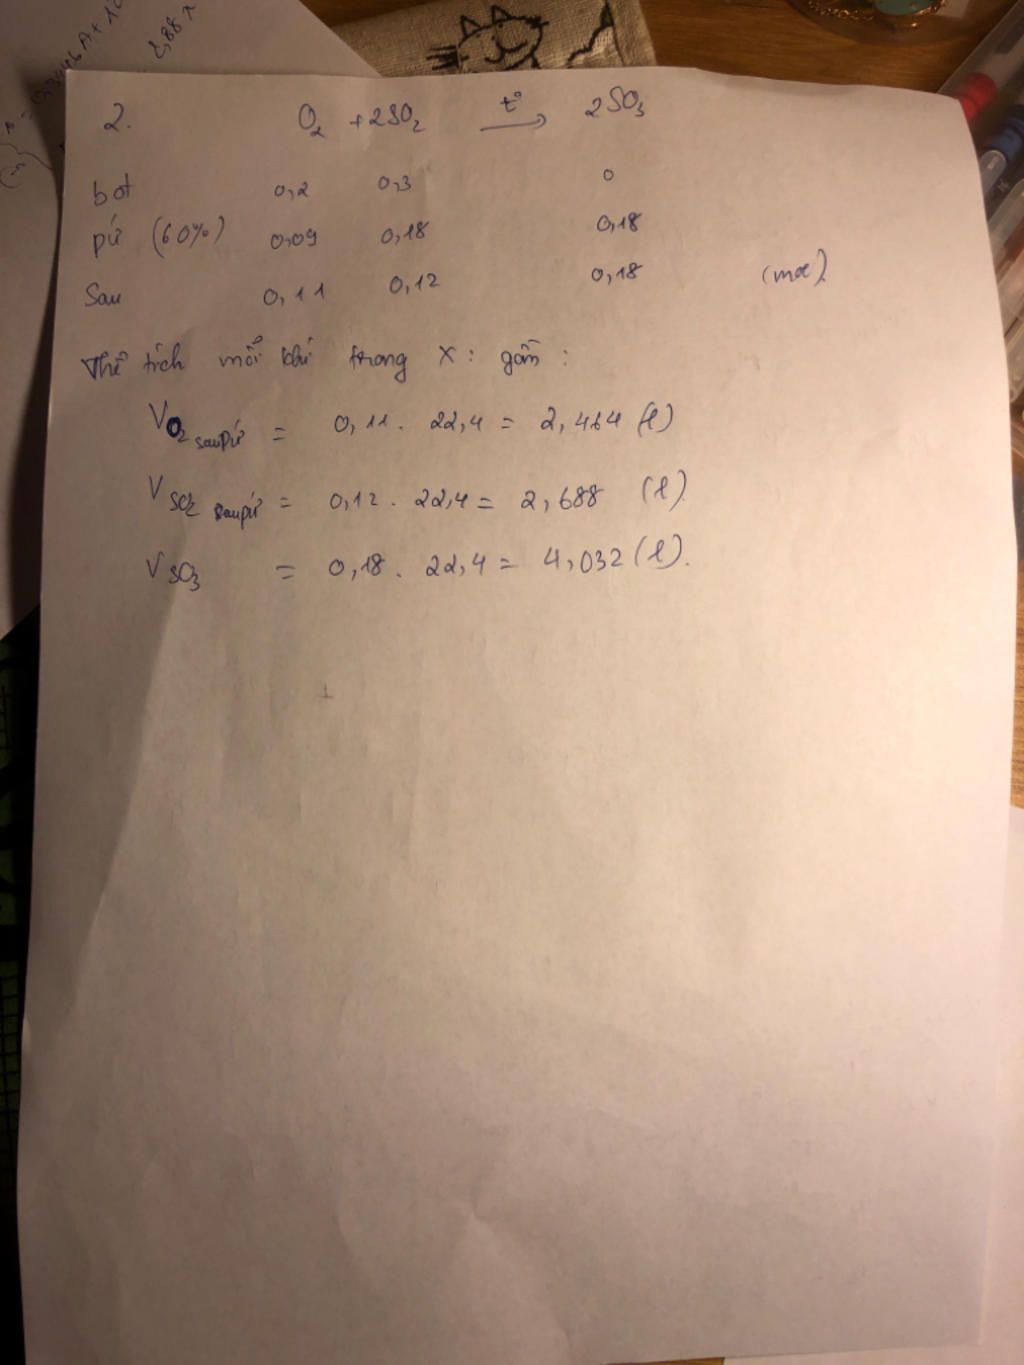 0,3446A+
1,88x
2. O₂ + 2SO₂ —t°→ 2SO₃
bđ 0,2 0,3 0
pứ (60%) 0,09 0,18 0,18
Sau 0,11 0,12 0,18 (mol)
Thể tích mỗi khí trong X: gồm:
V O₂ sau pứ = 0,11. 22,4 = 2,464 (l)
V SO₂ sau pứ = 0,12. 22,4 = 2,688 (l)
V SO₃ = 0,18. 22,4 = 4,032 (l).